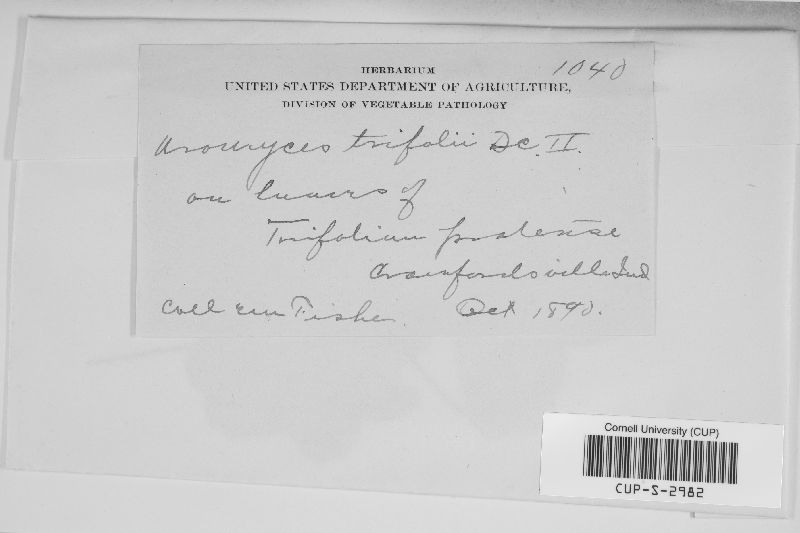 1040
HERBARIUM
UNITED STATES DEPARTMENT OF AGRICULTURE,
DIVISION OF VEGETABLE PATHOLOGY
Uromyces trifolii Dc. II.
on leaves of
Trifolium pratense
Crawfordsville Ind
Coll EM Fisher. Oct 1890.
Cornell University (CUP)
CUP-S-2982